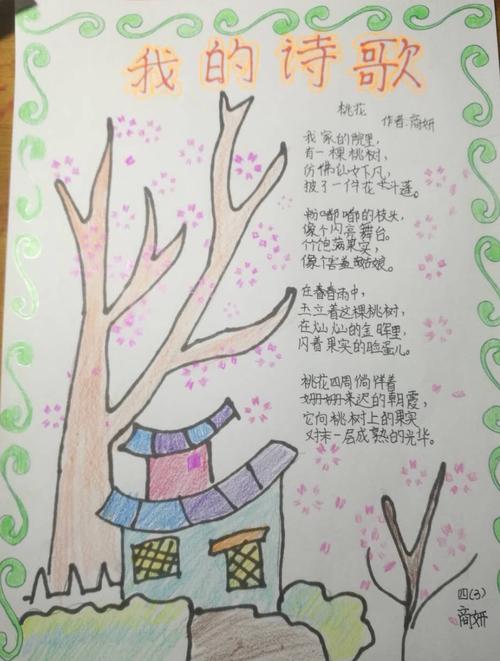 我的诗歌
桃花
作者:商妍
我家的院里,
有一棵桃树,
仿佛仙女下凡,
披了一件花斗蓬。
嘟嘟的枝头,
像个闪亮舞台。
饱满果实,
像个害羞姑娘。
在春雨中,
玉立着这棵桃树,
在灿灿的金晖里,
闪着果实的脸蛋儿。
桃花四周伴着
姗姗来迟的朝霞,
它向桃树上的果实
对抹一层成熟的光华。
四(3)
商妍